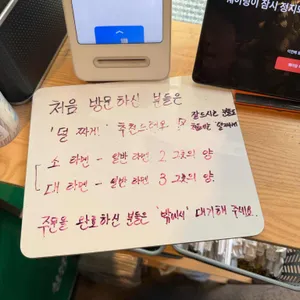 처음 방문하신 분들은
'덜 짜게' 추천드려요.
잘드시는 분들도
처음엔 덜짜게!
소 라멘 - 일반 라멘 2그릇의 양
대 라멘 - 일반 라멘 3그릇의 양.
주문을 완료하신 분들은 "밖에서" 대기해 주세요.
웨이팅이 잠시 정지되